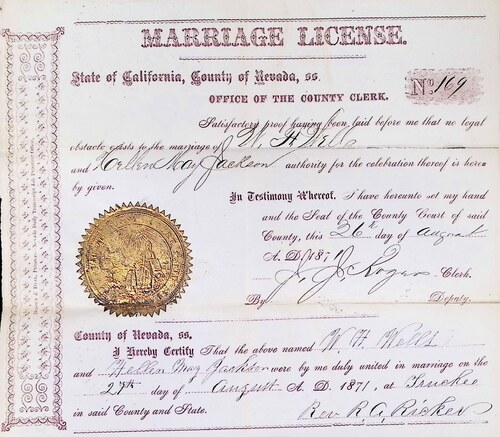 MARRIAGE LICENSE.
State of California, County of Nevada, ss.
No. 169
OFFICE OF THE COUNTY CLERK.
Satisfactory proof having been laid before me that no legal
obstacle exists to the marriage of W. H. Wells
and Hellen May Jackson authority for the celebration thereof is here-
by given.
In Testimony Whereof, I have hereunto set my hand
and the Seal of the County Court of said
County, this 26th day of August
A. D. 1871
J. J. Rogers Clerk.
By Deputy.
County of Nevada, ss.
I Hereby Certify That the above named W. H. Wells
and Hellen May Jackson were by me duly united in marriage on the
27th day of August A. D. 1871, at Truckee
in said County and State.
Rev. R. A. Ricker